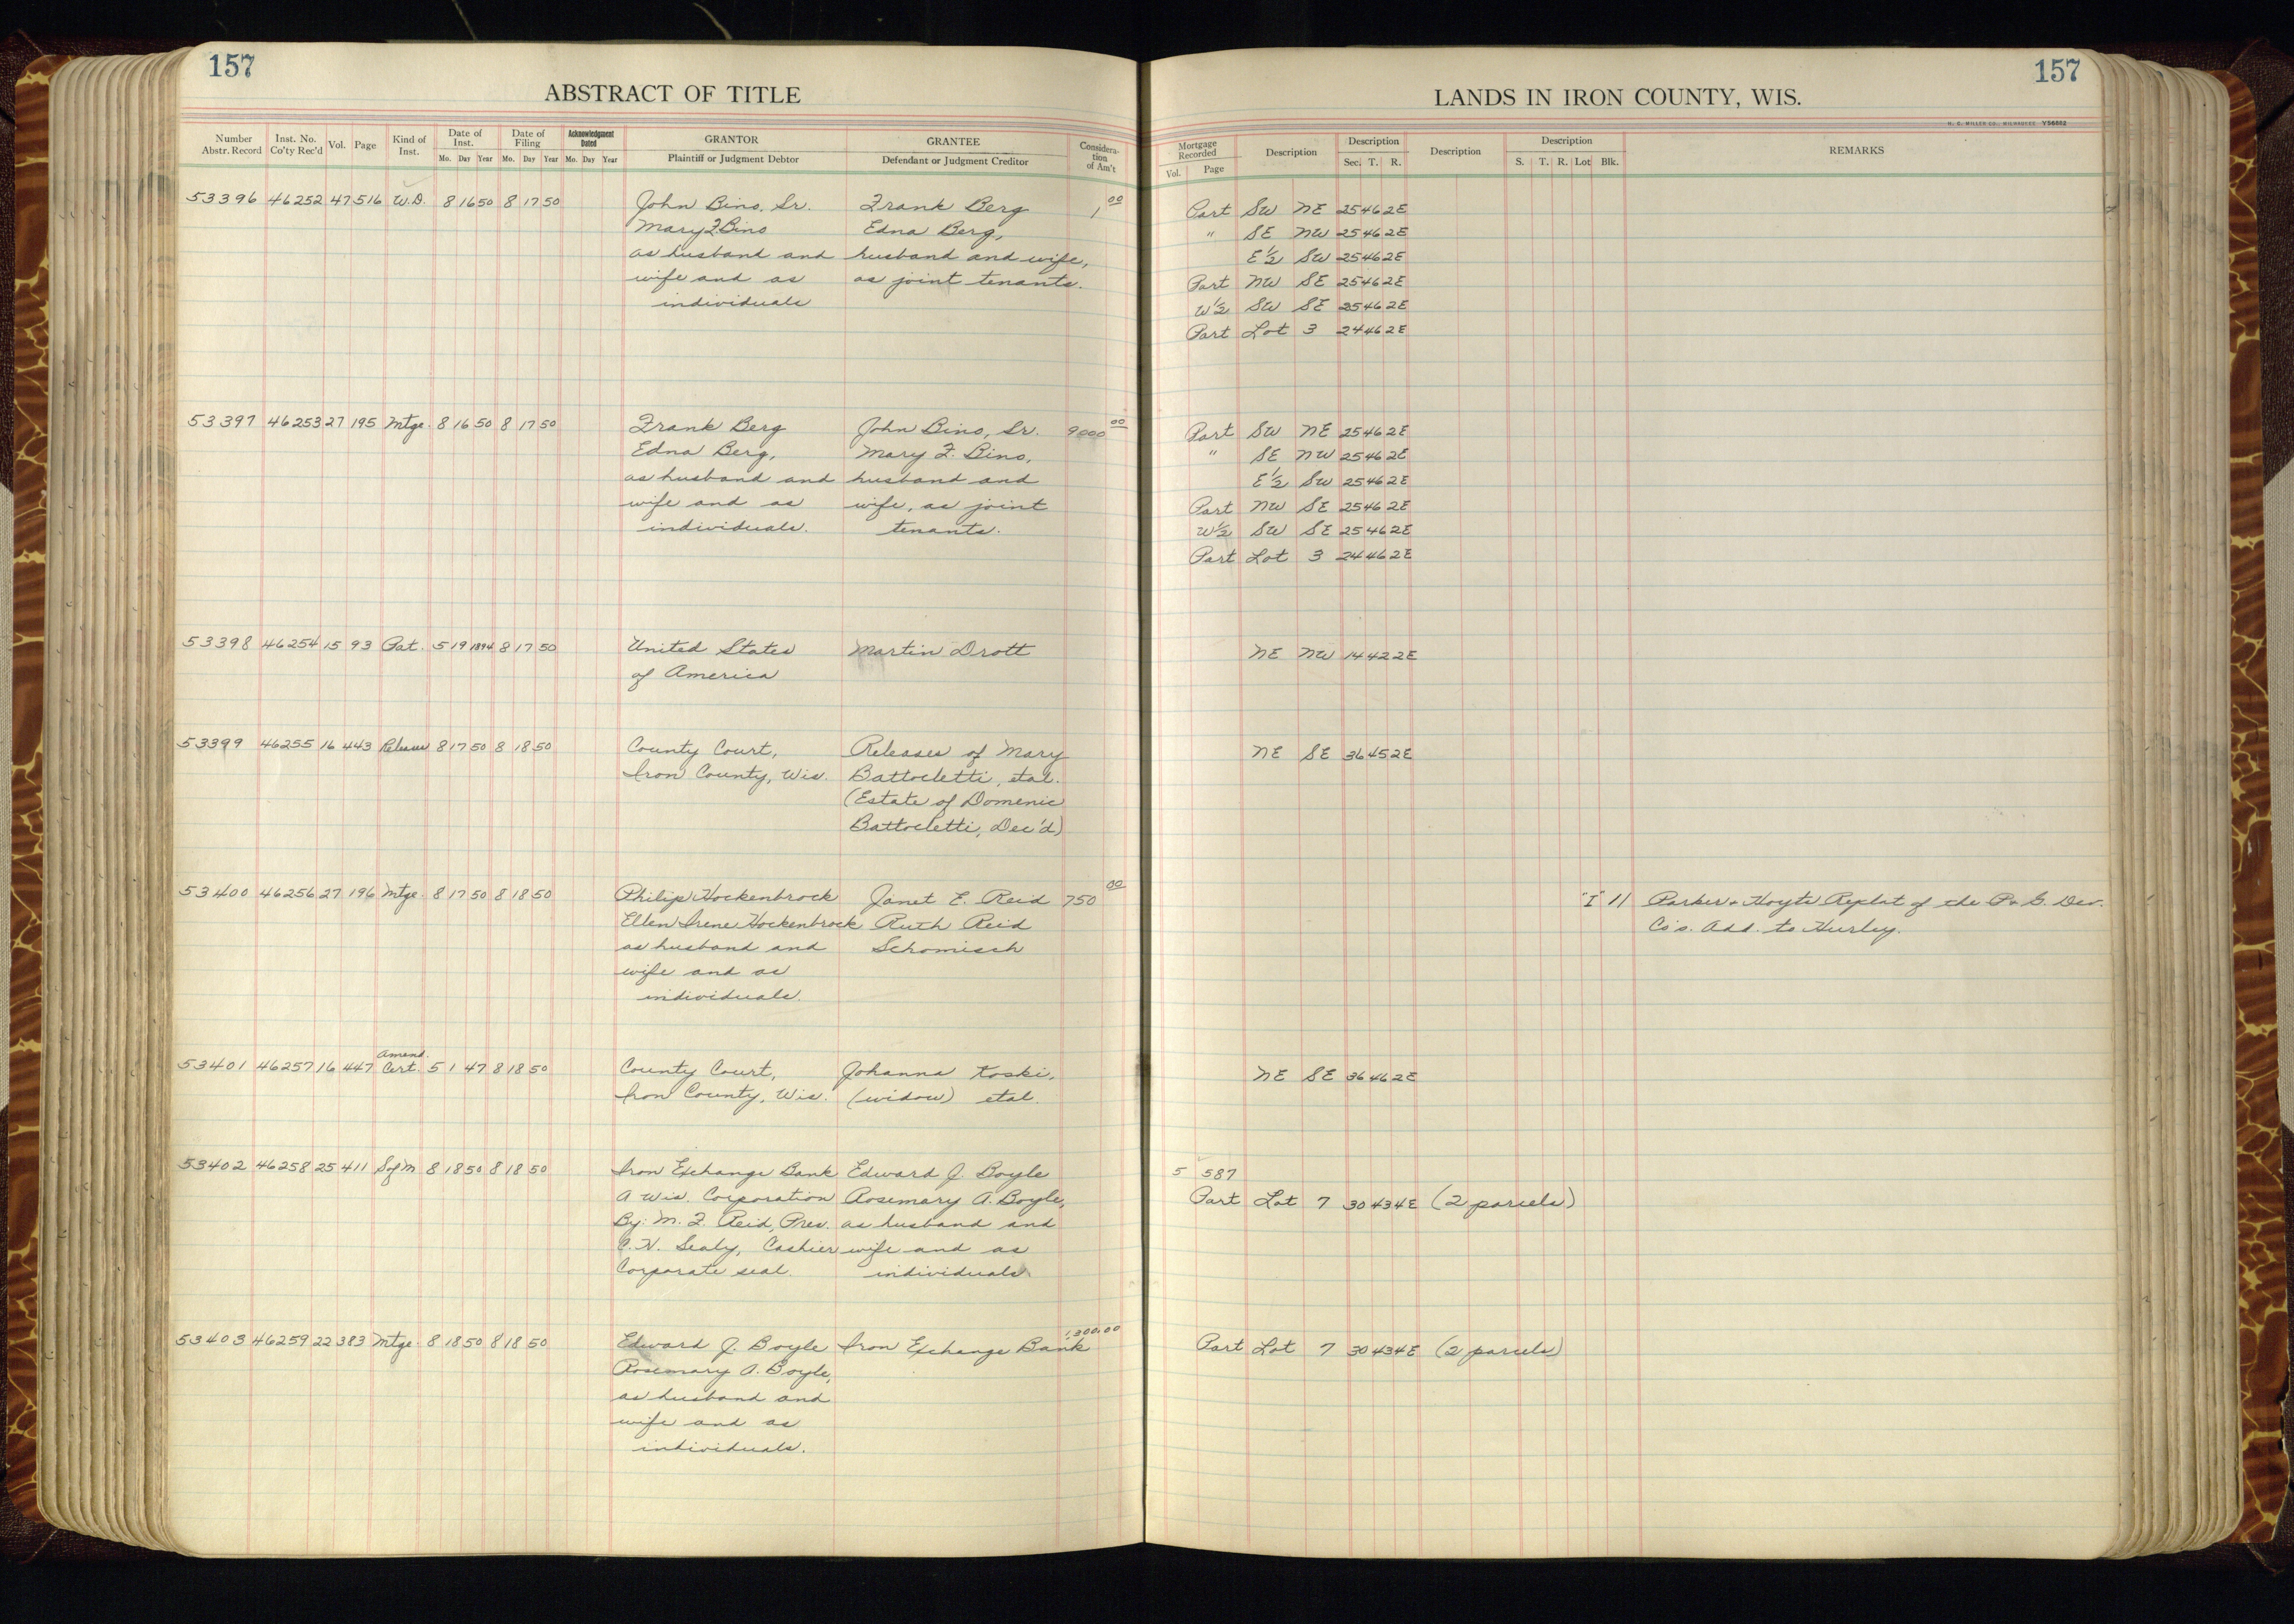 157
ABSTRACT OF TITLE
Number Abstr. Record Inst. No. Co'ty Rec'd Vol. Page Kind of Inst. Date of Inst. Mo. Day Year Date of Filing Mo. Day Year Acknowledgment Dated Mo. Day Year GRANTOR Plaintiff or Judgment Debtor GRANTEE Defendant or Judgment Creditor Consideration of Am't
53396 46252 47 516 W.D. 8 16 50 8 17 50 John Bino, Sr. Frank Berg 1 00
Mary F. Bino Edna Berg,
as husband and husband and wife,
wife and as as joint tenants.
individuals
53397 46253 27 195 Mtge. 8 16 50 8 17 50 Frank Berg John Bino, Sr. 9000 00
Edna Berg, Mary F. Bino,
as husband and husband and
wife and as wife, as joint
individuals. tenants.
53398 46254 15 93 Pat. 5 19 1894 8 17 50 United States Martin Drott
of America
53399 46255 16 443 Releases 8 17 50 8 18 50 County Court, Releases of Mary
Iron County, Wis. Battocletti, etal.
(Estate of Domenic
Battocletti, Dec'd)
53400 46256 27 196 Mtge. 8 17 50 8 18 50 Philip Hockenbrock Janet E. Reid 750 00
Ellen Irene Hockenbrock Ruth Reid
as husband and Schomisch
wife and as
individuals.
Amend.
53401 46257 16 447 Cert. 5 1 47 8 18 50 County Court, Johanna Koski,
Iron County, Wis. (widow) etal.
53402 46258 25 411 S of M 8 18 50 8 18 50 Iron Exchange Bank Edward J. Boyle
A Wis. Corporation Rosemary A. Boyle,
By: M. F. Reid, Pres. as husband and
C. N. Sealy, Cashier wife and as
Corporate seal. individuals
53403 46259 22 383 Mtge. 8 18 50 8 18 50 Edward J. Boyle Iron Exchange Bank 1,300.00
Rosemary A. Boyle,
as husband and
wife and as
individuals.
157
LANDS IN IRON COUNTY, WIS.
H. C. MILLER CO., MILWAUKEE Y56652
Mortgage Recorded Vol. Page Description Description Sec. T. R. Description Description S. T. R. Lot Blk. REMARKS
Part SW NE 25 46 2E
" SE NW 25 46 2E
E½ SW 25 46 2E
Part NW SE 25 46 2E
W½ SW SE 25 46 2E
Part Lot 3 24 46 2E
Part SW NE 25 46 2E
" SE NW 25 46 2E
E½ SW 25 46 2E
Part NW SE 25 46 2E
W½ SW SE 25 46 2E
Part Lot 3 24 46 2E
NE NW 14 42 2E
NE SE 36 45 2E
"I" 11 Parker & Hoyts Replat of the P & G. Dev.
Co's. Add. to Hurley.
NE SE 36 46 2E
5 587
Part Lot 7 30 43 4E (2 parcels)
Part Lot 7 30 43 4E (2 parcels)